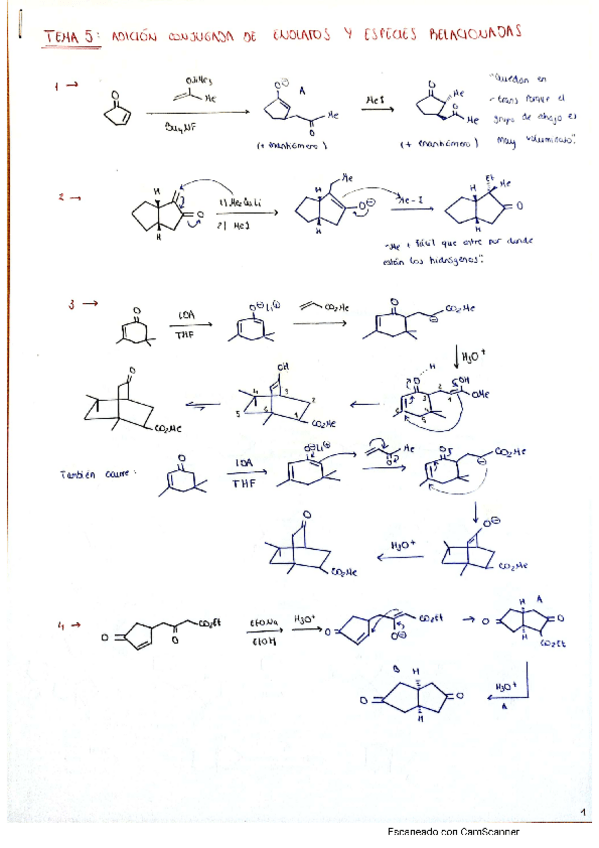 TEMA 5: ADICIÓN CONJUGADA DE ENOLATOS Y ESPECIES RELACIONADAS
1 →
O
OSiMe3
Me
Bu4NF
O⊖
A
Me
O
(+ enantiómero)
MeI
O
Me
Me
O
(+ enantiómero)
"Quedan en
trans porque el
grupo de abajo es
muy voluminoso".
2 →
H
H
O
1) Me2CuLi
2) MeI
Me
H
H
O⊖
Me-I
H
Et
Me
O
H
"Me + fácil que entre por donde
están los hidrógenos".
3 →
O
LDA
THF
O⊖Li⊕
CO2Me
O
CO2Me
⊖
H3O+
O
H
OH
OMe
1
2
3
4
5
6
OH
CO2Me
⇌
O
CO2Me
También ocurre:
O
LDA
THF
O⊖Li⊕
Me
O
O
CO2Me
⊖
O⊖
CO2Me
H3O+
O
CO2Me
4 →
O
O
CO2Et
EtONa
EtOH
H3O+
O
O⊖
CO2Et
A
H
O
O
H
CO2Et
H3O+
Δ
B
H
O
O
H
1
Escaneado con CamScanner